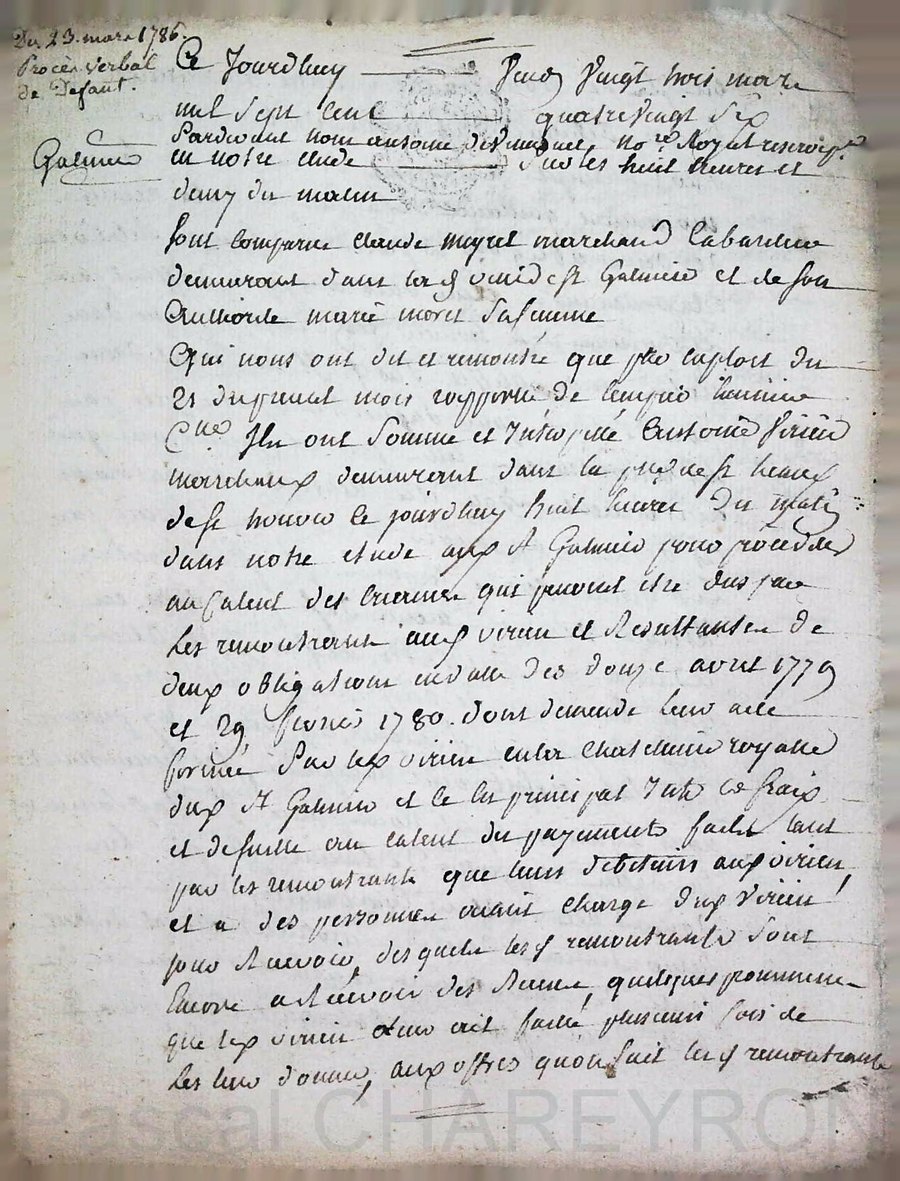 Du 23. mars 1786.
Procès verbal
de Defaut.
Galmier
Ce Jourdhuy Jeudy Vingt trois mars
mil sept cent quatrevingt six
Pardevant nous antoine notre Royal
en notre etude Sur les huit heures et
demy du matin
Sont Comparus claude meyret marchand Cabartier
demeurant dans la de st Galmier et de son
Authorité marie moret Sa femme
Qui nous ont dit et remontré que par Exploit du
21 du present mois rapporté de
Cne Ils ont Sommé et Interpellé Antoine Virieu
demeurant dans la psse de st heaux
de st honoré le jourdhuy huit heures du matin
dans notre etude aud st Galmier pour procéder
au Calcul des Creances qui peuvent etre dus par
Les remontrants aud virieu et Resultantes de
deux obligations en datte des douze avril 1779
et 29 fevrier 1780. dont demande leur a été
formée Par led virieu en la Chatelenie royalle
dud st Galmier et ce en principal Interets et frais
et desuitte au calcul des payements faits tant
par les remontrants que leurs debiteurs aud virieu,
et a des personnes ayant charge dud Virieu
pour Recevoir, desquels les d remontrants Sont
Encore a Recevoir des Recus, quelques
que led virieu leur ait faitte plusieurs fois de
Les leur donner, aux offres quon fait les d remontrants
Pascal CHAREYRON